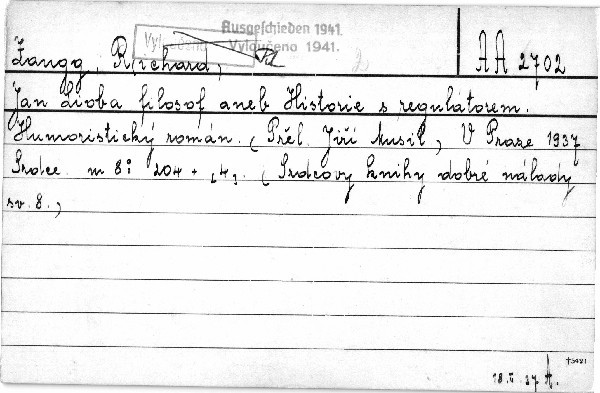 Ausgeschieden 1941.
Vyloučeno 1941.
Zangg, R(ichard)
AA 2702
Jan Lioba filosof aneb Historie s regulátorem.
Humoristický román. (Přel. Jiří Musil) V Praze 1937
Srdce. m 8° 204 + [4]. (Srdcovy knihy dobré nálady
sv. 8.)
†3421
18. 37 A.